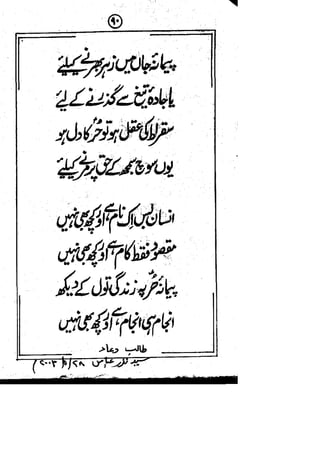 ۹۰
پیمانۂ جاں میں زہر بھرنے کیلئے
یا جادۂ تیغ سے گذرنے کے لئے
سقراط کی عقل ہو تو حُر کا دل ہو
یوں سوچ سمجھ کے حق پر مرنے کیلئے
انساں بس اِک نام ہے اور کچھ بھی نہیں
مقصود فقط کام ہے اور کچھ بھی نہیں
پیمانۂ حُر پہ زندگی تول کے دیکھ
انجام ہی انجام ہے اور کچھ بھی نہیں
طالب دعاء
سید نذر عباس